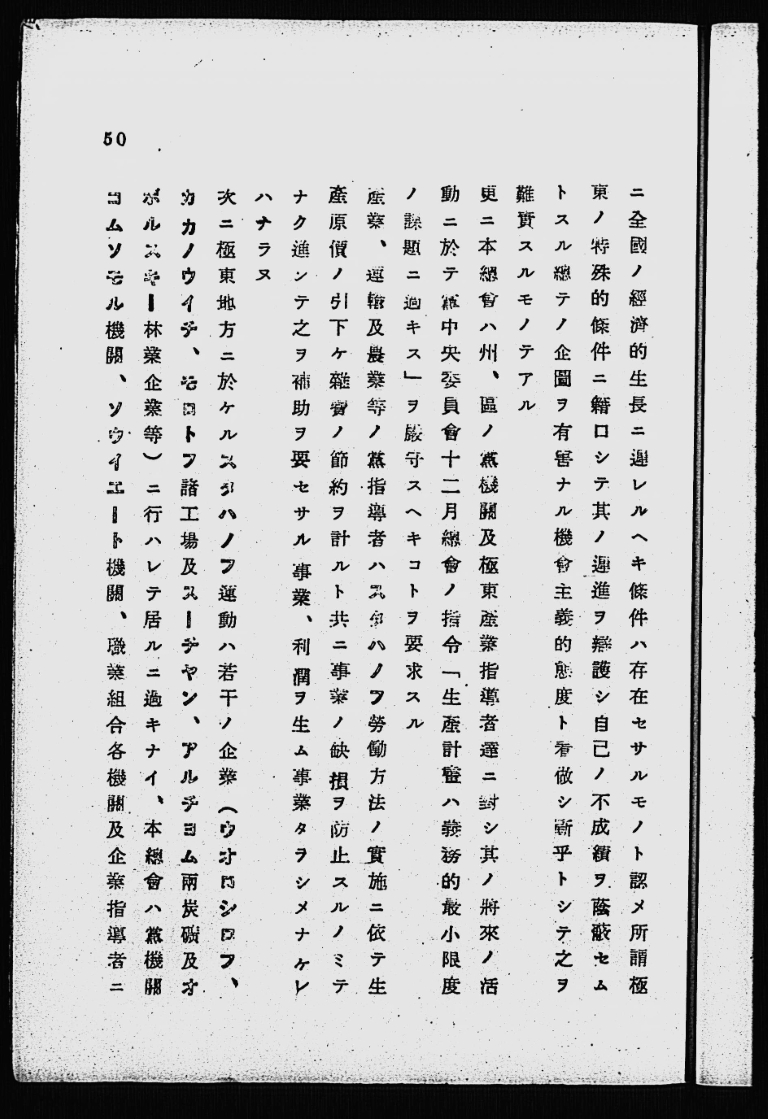 50
ニ全國ノ經濟的生長ニ遲レルヘキ條件ハ存在セサルモノト認メ所謂極
東ノ特殊的條件ニ藉口シテ其ノ遲進ヲ辯護シ自己ノ不成績ヲ蔭蔽セム
トスル總テノ企圖ヲ有害ナル機會主義的態度ト看做シ斷乎トシテ之ヲ
難實スルモノテアル
更ニ本總會ハ州、區ノ黨機關及極東產業指導者達ニ對シ其ノ將來ノ活
動ニ於テ黨中央委員會十二月總會ノ指令「生產計畫ハ義務的最小限度
ノ課題ニ過キス」ヲ嚴守スヘキコトヲ要求スル
產業、運輸及農業等ノ黨指導者ハスタハノフ勞働方法ノ實施ニ依テ生
產原價ノ引下ケ雜費ノ節約ヲ計ルト共ニ事業ノ缺損ヲ防止スルノミテ
ナク進ンテ之ヲ補助ヲ要セサル事業、利潤ヲ生ム事業タラシメナケレ
ハナラヌ
次ニ極東地方ニ於ケルスタハノフ運動ハ若干ノ企業（ウオロシロフ、
カカノウイチ、モロトフ諸工場及スーチヤン、アルチヨム兩炭礦及オ
ボルスキー林業企業等）ニ行ハレテ居ルニ過キナイ、本總會ハ黨機關
コムソモル機關、ソウイエート機關、職業組合各機關及企業指導者ニ